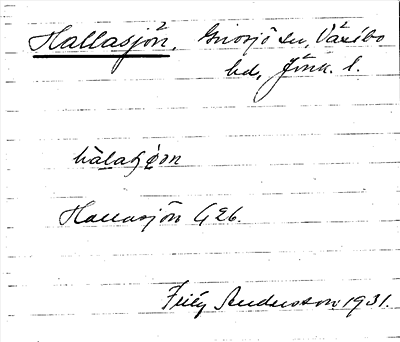 Hallasjön, Gnosjö sn, Västbo
hd, Jönk. l.
hàlaʃøn
Hallasjön G 26.
Frey Andersson 1931.